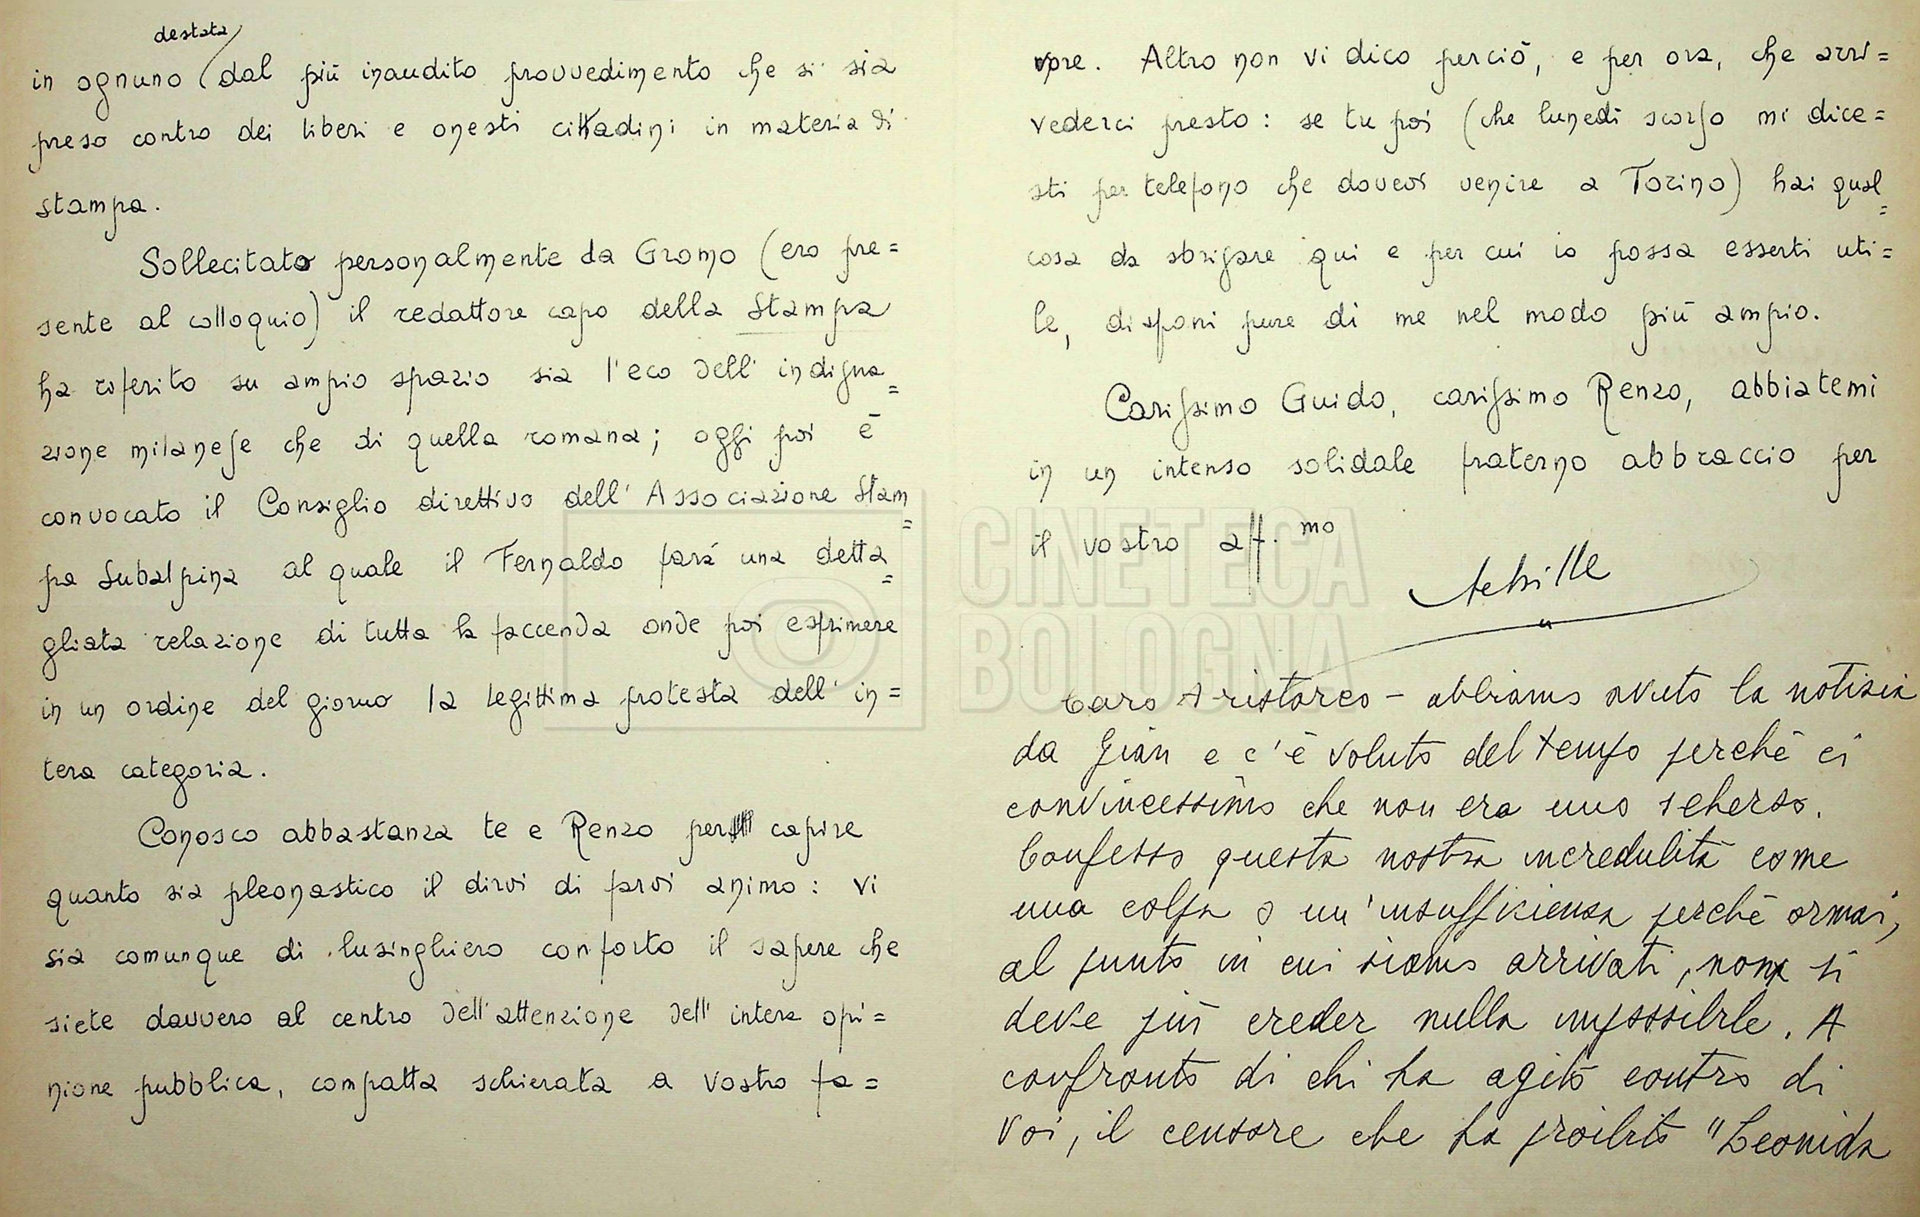 destata
in ognuno (dal più inaudito provvedimento che si sia
preso contro dei liberi e onesti cittadini in materia di
stampa.
Sollecitato personalmente da Gromo (ero pre=
sente al colloquio) il redattore capo della Stampa
ha riferito su ampio spazio sia l'eco dell'indigna=
zione milanese che di quella romana; oggi poi è
convocato il Consiglio direttivo dell'Associazione Stam=
pa Subalpina al quale il Fernaldo farà una detta=
gliata relazione di tutta la faccenda onde poi esprimere
in un ordine del giorno la legittima protesta dell'in=
tera categoria.
Conosco abbastanza te e Renzo per capire
quanto sia pleonastico il dirvi di farvi animo: vi
sia comunque di lusinghiero conforto il sapere che
siete davvero al centro dell'attenzione dell'intera opi=
nione pubblica, compatta schierata a vostro fa=
vore. Altro non vi dico perciò, e per ora, che arri=
vederci presto: se tu poi (che lunedì scorso mi dice=
sti per telefono che dovevi venire a Torino) hai qual=
cosa da sbrigare qui e per cui io possa esserti uti=
le, disponi pure di me nel modo più ampio.
Carissimo Guido, carissimo Renzo, abbiatemi
in un intenso solidale fraterno abbraccio per
il vostro aff.mo
Achille
Caro Aristarco - abbiamo avuto la notizia
da Gian e c'è voluto del tempo perché ci
convincessimo che non era uno scherzo.
Confesso questa nostra incredulità come
una colpa o un'insufficienza perché ormai,
al punto in cui siamo arrivati, non si
deve più creder nulla impossibile. A
confronto di chi ha agito contro di
voi, il censore che ha proibito "Leonida
CINETECA
BOLOGNA